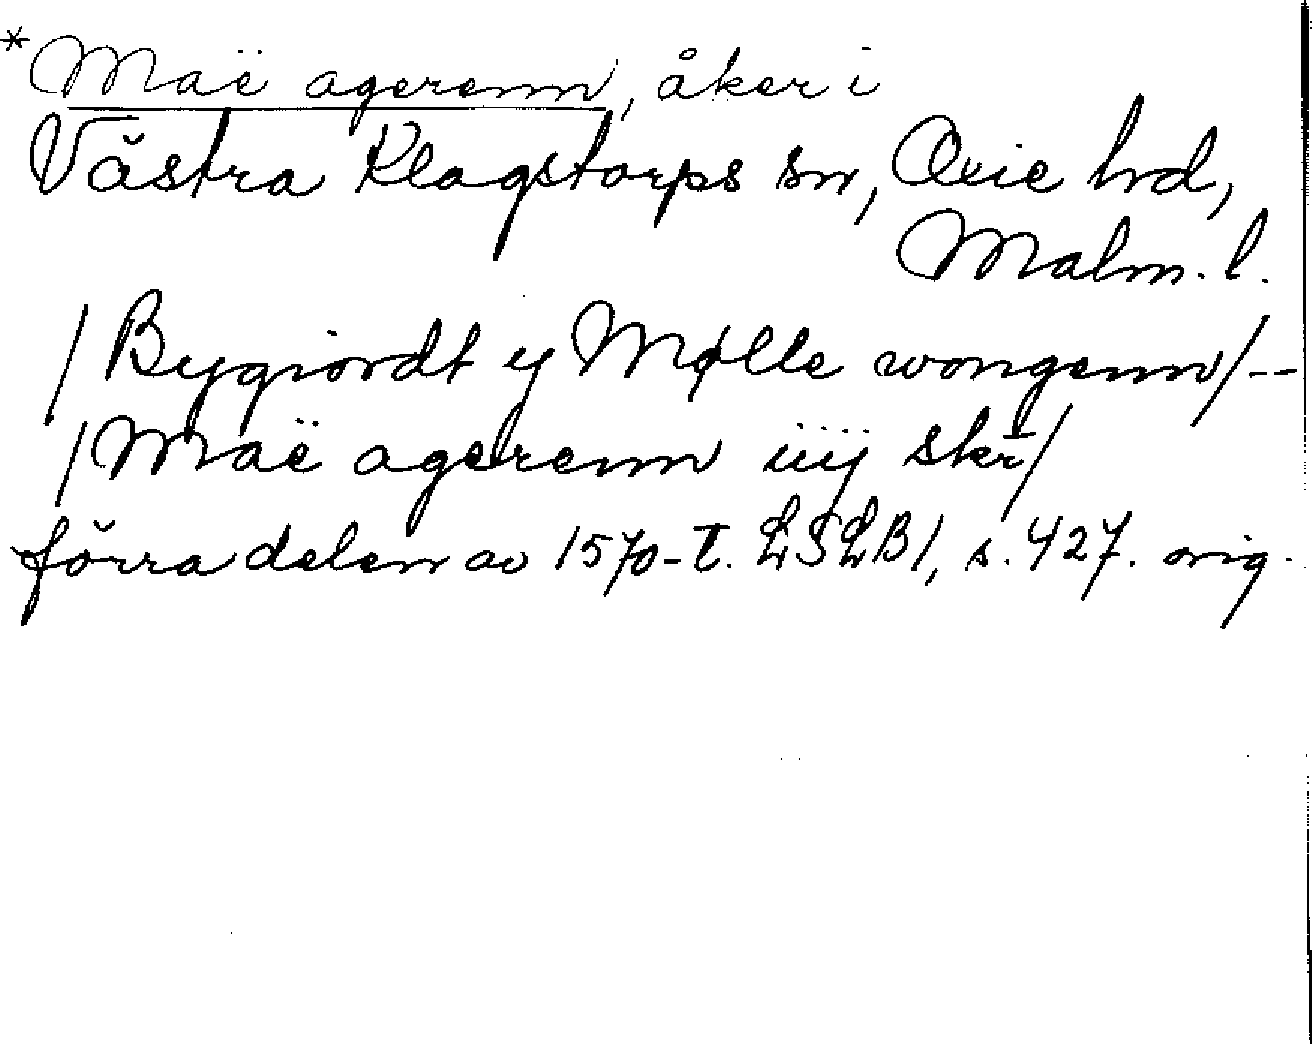 *Maë agerenn, åker i
Västra Klagstorps sn, Oxie hrd,
Malm. l.
/Bygiordt y Mølle wongenn/--
/Maë agerenn iiij skr/
förra delen av 1570-t. LSLB1, s. 427. orig.